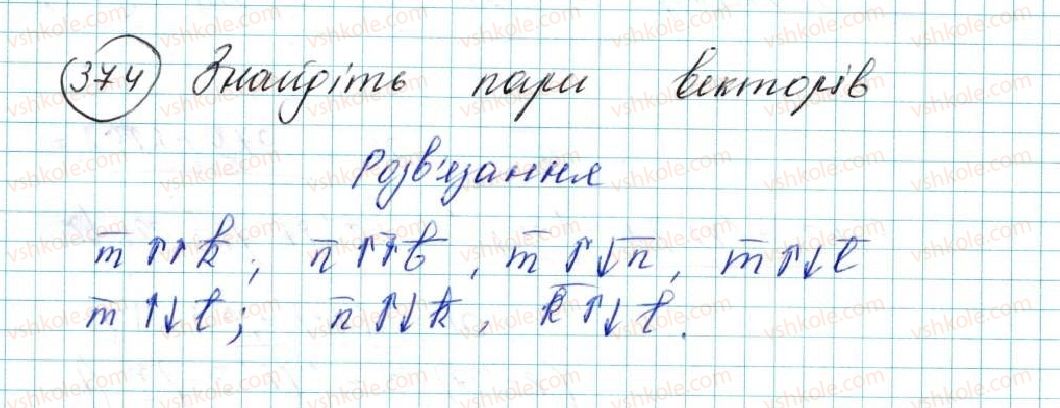 374 Знайдіть пари векторів
Розв'язання
m̅ ↑↑ k̅; n̅ ↑↑ b̅, m̅ ↑↓ n̅, m̅ ↑↓ ℓ̅
m̅ ↑↓ ℓ̅; n̅ ↑↓ k̅, k̅ ↑↓ ℓ̅.